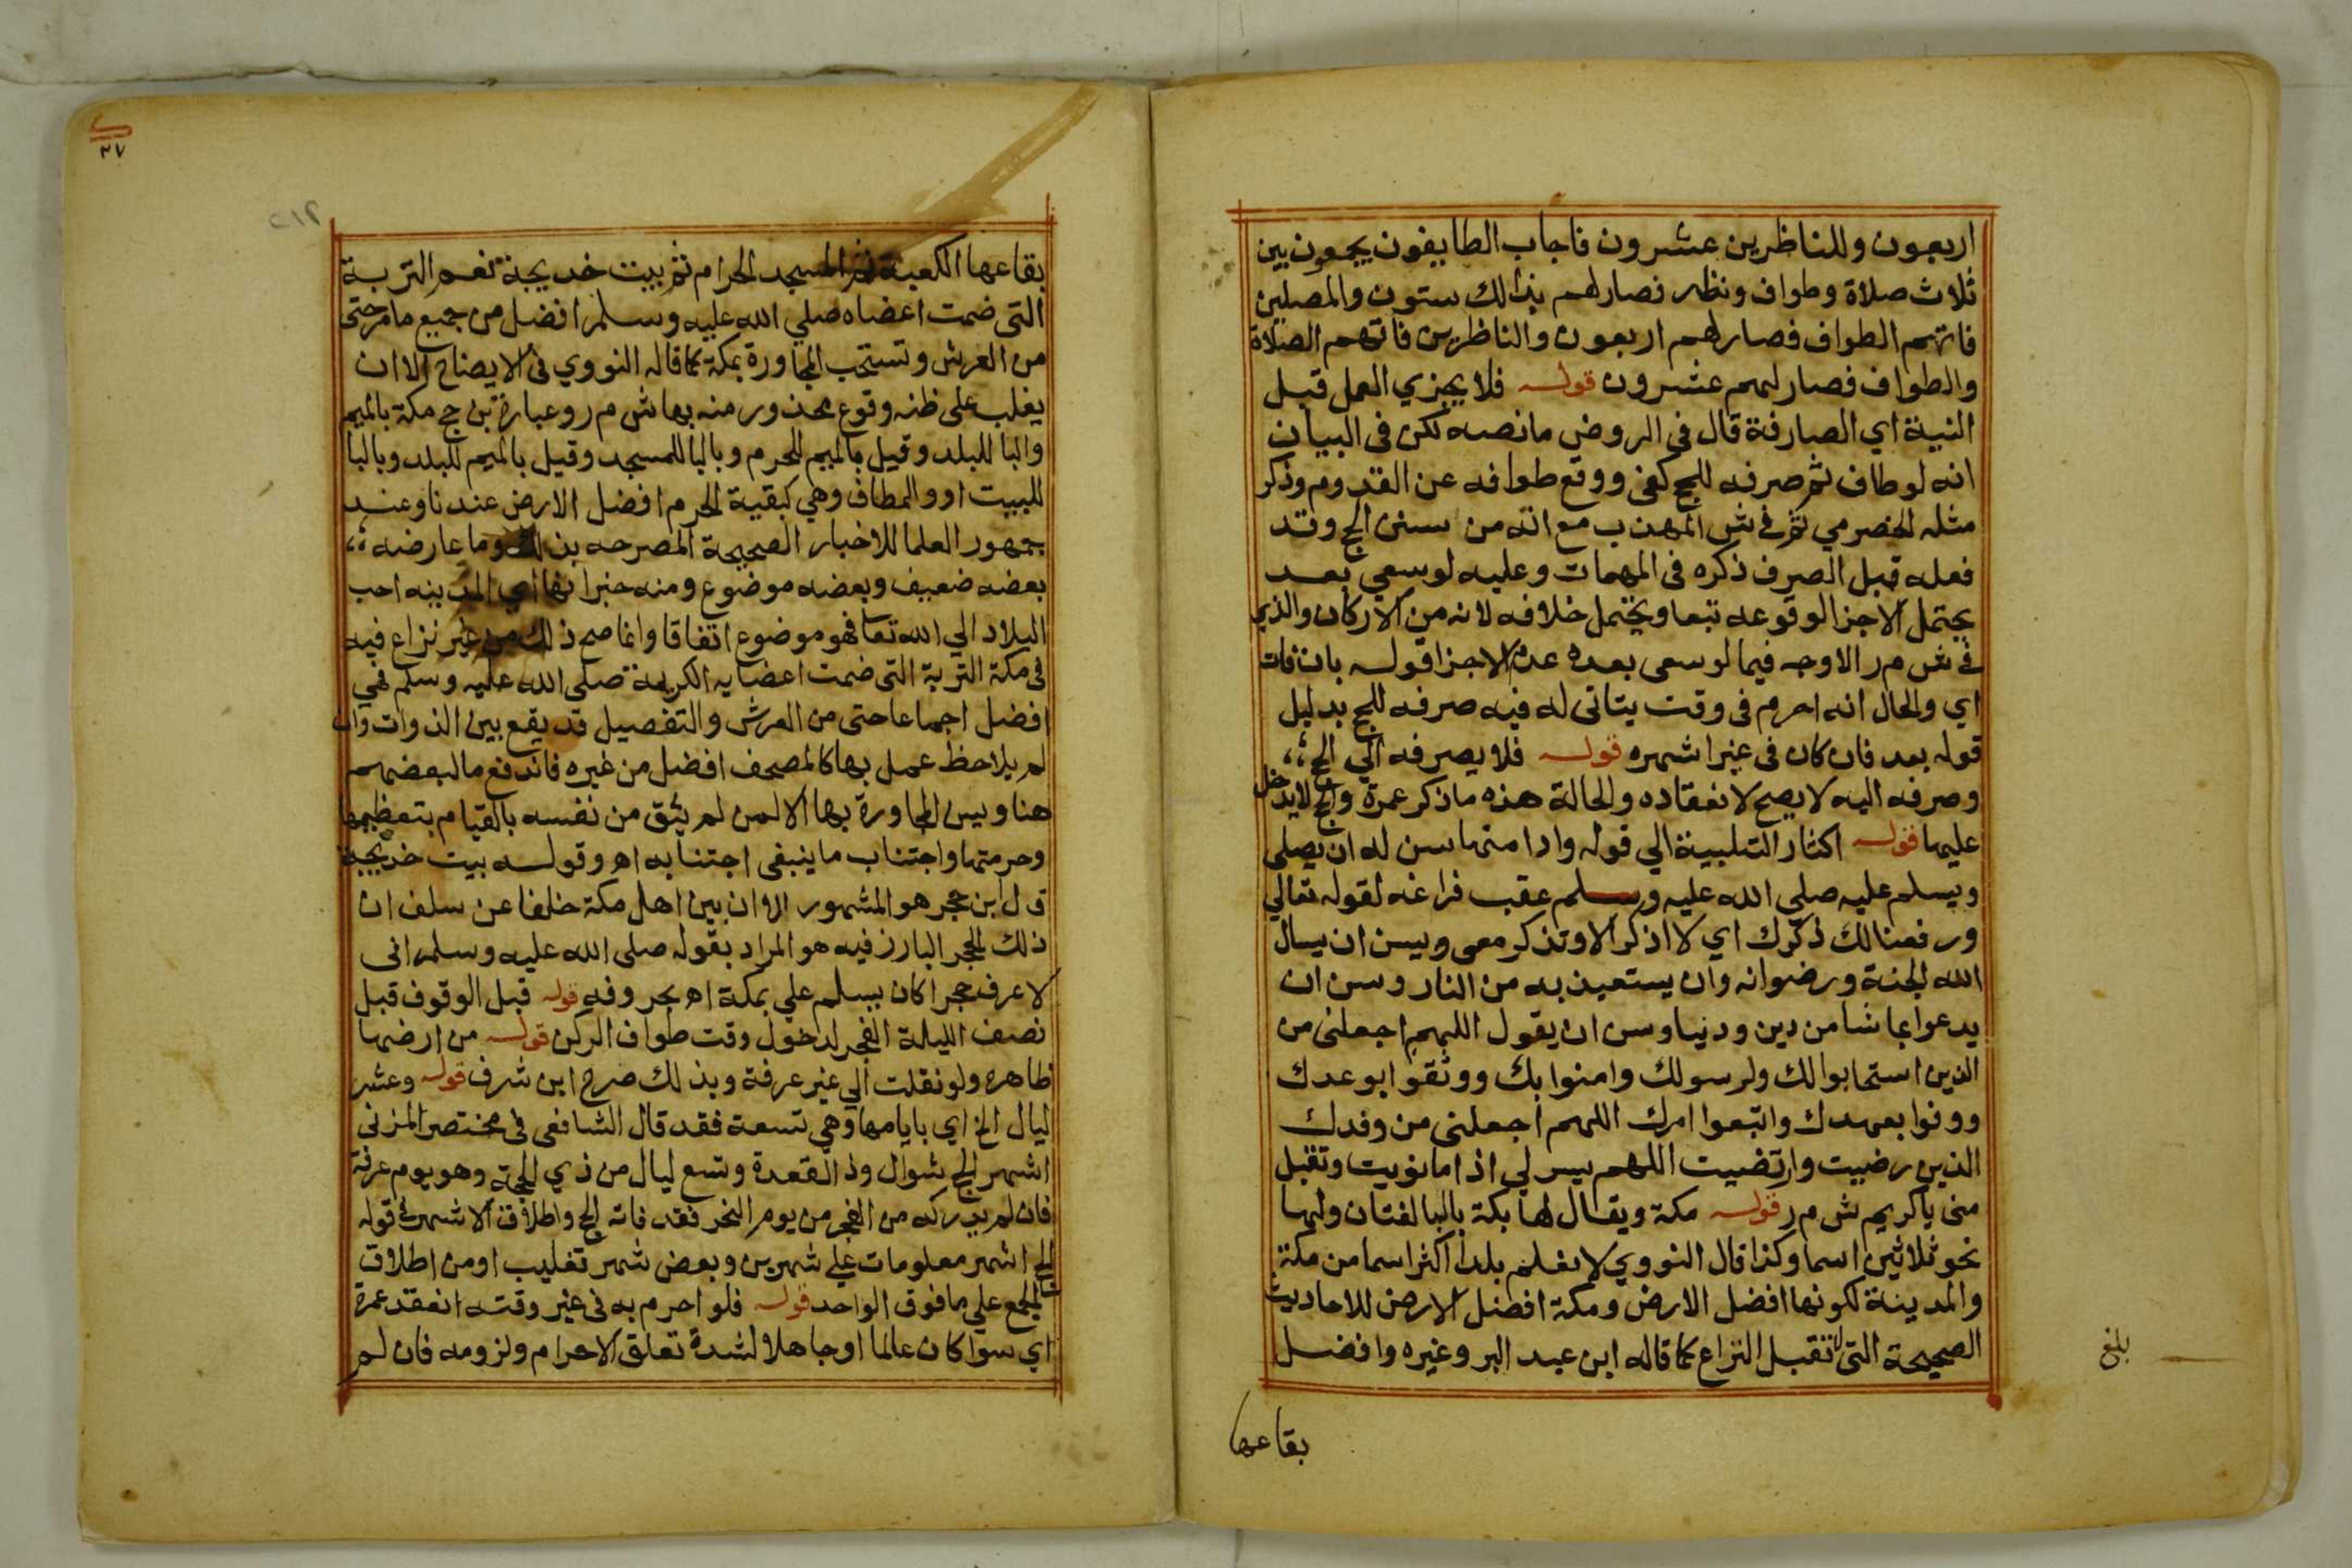 اربعون وللناظرين عشرون فاجاب الطايفون يجمعون بين
ثلاث صلاة وطواف ونظر فصار لهم بذالك ستون والمصلين
فاتهم الطواف فصار لهم اربعون والناظرين فاتهم الصلاة
والطواف فصار لهم عشرون قوله فلا يجزي العمل قبل
النية اي الصارفة قال في الروض ما نصه لكن في البيان
انه لو طاف ثم صرفه للحج كفى ووقع طوافه عن القدوم وذكر
مثله الحضرمي ثم في ش المهذب مع انه من سنن الحج وقد
فعله قبل الصرف ذكره في المهمات وعليه لو سعي بعد
يحتمل الاجزا لوقوعه تبعا ويحتمل خلافه لانه من الاركان والذي
في ش م ر الاوجه فيما لو سعى بعده عدم الاجزا قوله بان فات
اي والحال انه احرم في وقت يتاتى له فيه صرفه للحج بدليل
قوله بعد فان كان في غير اشهره قوله فلا يصرفه الي الحج
وصرفه اليه لا يصح لانعقاده والحالة هذه ما ذكر عمرة والحج لا يدخل
عليها قوله اكثار التلبية الي قوله وادامتها سن له ان يصلي
ويسلم عليه صلى الله عليه وسلم عقب فراغه لقوله تعالي
ورفعنا لك ذكرك اي لا اذكر الا وتذكر معي ويسن ان يسال
الله الجنة ورضوانه وان يستعيذ به من النار وسن ان
يدعوا بما شا من دين ودنيا وسن ان يقول اللهم اجعلنى من
الذين استجابوا لك ولرسولك وامنوا بك ووثقوا بوعدك
ووفوا بعهدك واتبعوا امرك اللهم اجعلنى من وفدك
الذين رضيت وارتضيت اللهم يسر لي اذا ما نويت وتقبل
منى ياكريم ش م ر قوله مكة ويقال لها بكة بالبا لغتان ولها
نحو ثلاثين اسما وكذا قال النووي لا نعلم بلدا اكثر اسما من مكة
والمدينة لكونها افضل الارض ومكة افضل الارض للاحاديث
الصحيحة التى لا تقبل النزاع كما قاله ابن عبد البر وغيره وافضل
بقاعها
بلغ
٢٧
٢١٢
بقاعها الكعبة ثم المسجد الحرام ثم بيت خديجة نعم التربة
التى ضمت اعضاه صلي الله عليه وسلم افضل من جميع ما مر حتى
من العرش وتستحب المجاورة بمكة كما قاله النووي في الايضاح الا ان
يغلب على ظنه وقوع محذور منه بها ش م ر وعبارة بن حج مكة بالميم
والبا للبلد وقيل بالميم للحرم وبالبا للمسجد وقيل بالميم للبلد وبالبا
للبيت او والمطاف وهي كبقية الحرم افضل الارض عندنا وعند
جمهور العلما للاخبار الصحيحة المصرحه بذلك وما عارضه
بعضه ضعيف وبعضه موضوع ومنه خبر انها اي المدينه احب
البلاد الي الله تعا فهو موضوع اتفاقا وانما صح ذلك من غير نزاع فيه
في مكة التربة التى ضمت اعضايه الكريمة صلى الله عليه وسلم فهي
افضل اجماعا حتى من العرش والتفصيل قد يقع بين الذوات وان
لم يلاحظ عمل بها كالمصحف افضل من غيره فاندفع ما لبعضهم
هنا ويسن المجاورة بها الا لمن لم يثق من نفسه بالقيام بتعظيمها
وحرمتها واجتناب ما ينبغى اجتنابه اه وقوله بيت خديجة
قال ابن حجر هو المشهور الان بين اهل مكة خلفا عن سلف ان
ذلك الحجر البارز فيه هو المراد بقوله صلى الله عليه وسلم انى
لاعرف حجرا كان يسلم علي بمكة اه بحروفه قوله قبل الوقوف قبل
نصف الليلة الفجر لدخول وقت طواف الركن قوله من ارضها
ظاهره ولو نقلت الي غير عرفة وبذلك صرح ابن شرف قوله وعشر
ليال الخ اي بايامها وهي تسعة فقد قال الشافعى في مختصر المزنى
اشهر الحج شوال وذ القعدة وتسع ليال من ذي الحجة وهو يوم عرفة
فان لم يدركه من الفجر من يوم النحر فقد فاته الحج واطلاق الاشهر في قوله
الحج اشهر معلومات علي شهرين وبعض شهر تغليب او من اطلاق
الجمع علي ما فوق الواحد قوله فلو احرم به في غير وقته انعقد عمرة
اي سوا كان عالما او جاهلا لشدة تعلق الاحرام ولزومه فان لم